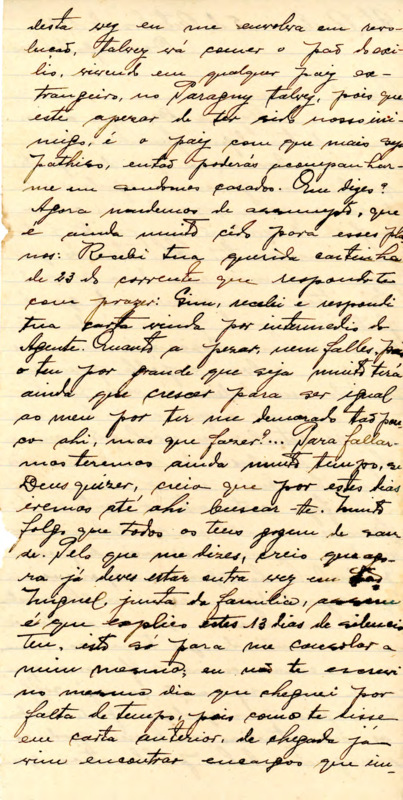 desta vez eu me envolva em revo-
lução, talvez vá comer o pão do exi-
lio, vivendo em qualquer paiz ex-
trangeiro, no Paraguy talvez, pois que
este apezar de ter sido nosso ini-
migo, é o paiz com que mais sym
pathiso, então poderás acompanhar-
me si sendomos casados. Que dizes?
Agora mudemos de assumpto, que
é ainda muito cêdo para esses pla
nos: Recebi tua querida cartinha
de 23 do corrente que respondo-te
com prazer: Sim, recebi e respondi
tua carta vinda por intermedio do
Agente. Quanto a pezar, nem falles, pois
o teu por grande que seja muito terá
ainda que crescer para ser igual
ao meu por ter me demorado tão pou
co ahi, mas que fazer?... Para fallar-
mos teremos ainda muito tempo, se
Deus quizer, creio que por estes dias
iremos até ahi buscar-te. Muito
folgo que todos os teus gozem de sau
de. Pelo que me dizes, creio que ago-
ra já deves estar outra vez em São
Miguel junta da familia,
é que explico estes 13 dias de silencio
teu, isto só para me consolar a
mim mesmo; eu não te escrevi
no mesmo dia que cheguei por
falta de tempo, pois como te disse
em carta anterior, de chegada já
vim encontrar encargos que im-